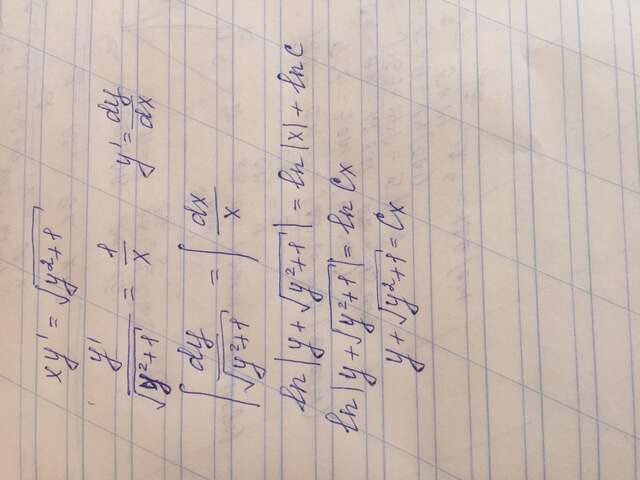 xy' = √(y²+1)
y'/√(y²+1) = 1/x    y' = dy/dx
∫ dy/√(y²+1) = ∫ dx/x
ln|y + √(y²+1)| = ln|x| + ln C
ln|y + √(y²+1)| = ln Cx
y + √(y²+1) = Cx